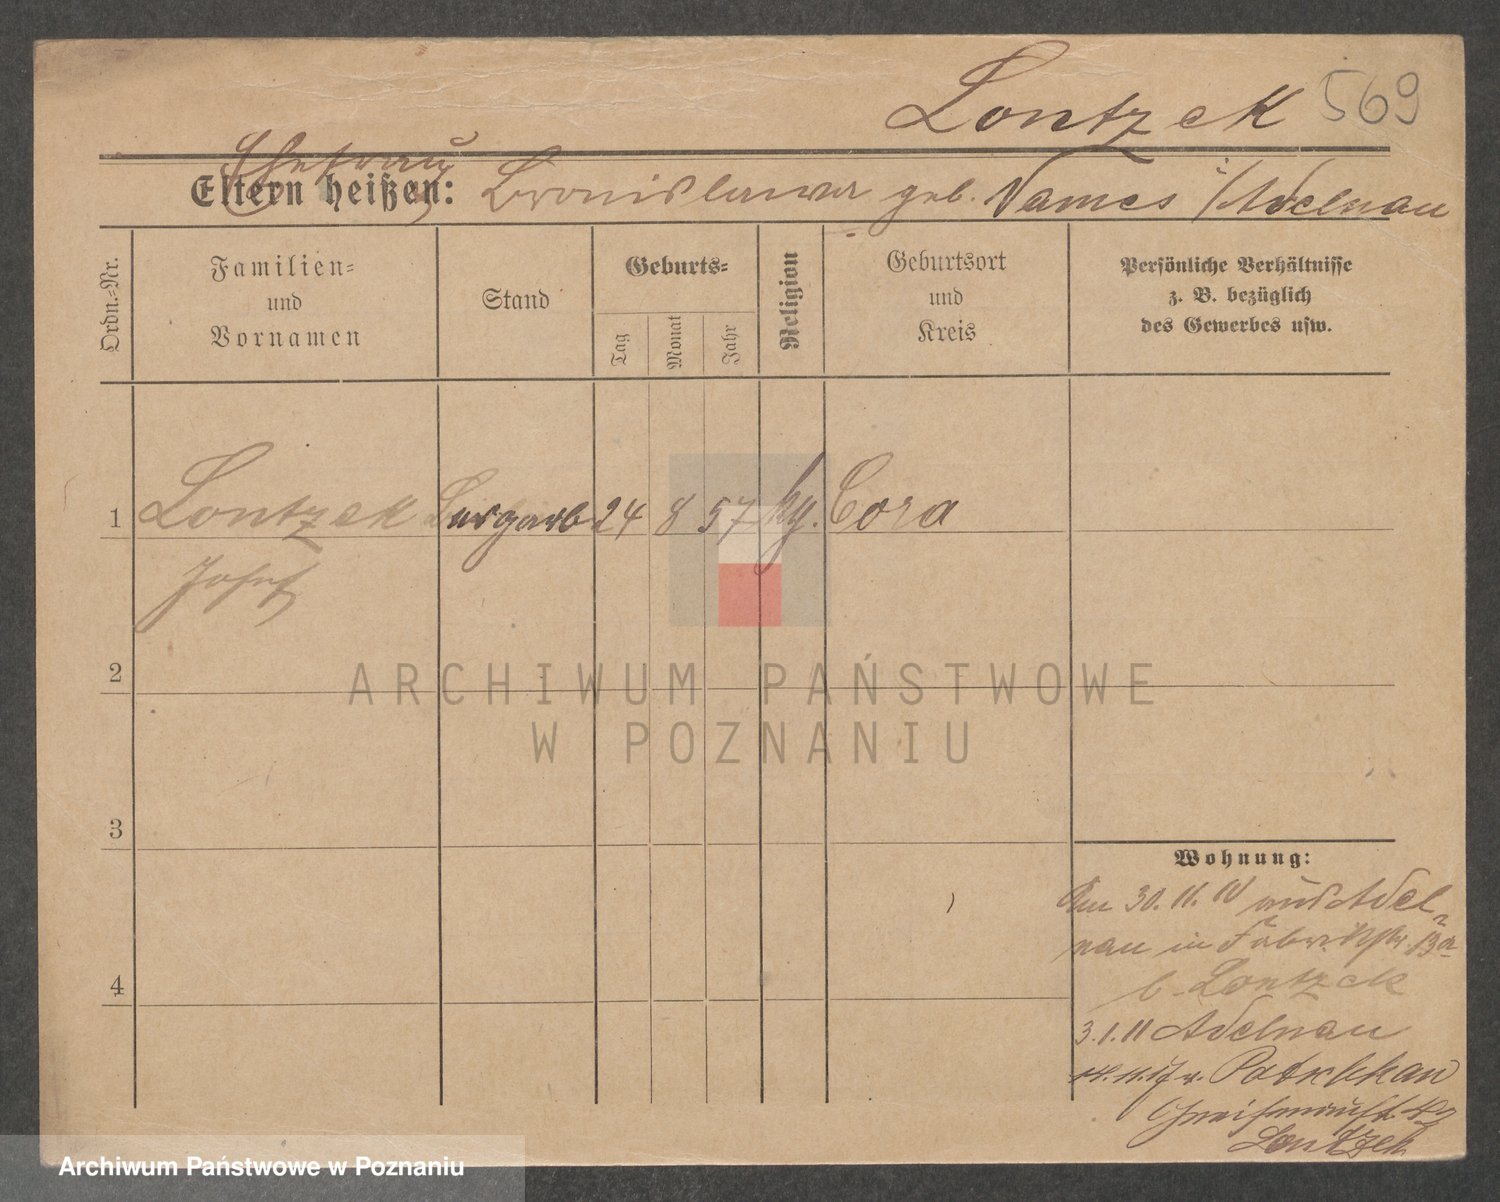 Lontzek 569
Ehefrau
Eltern heißen: Bronislawa geb. Names i/Adelnau
Ordn.-Nr.
Familien-
und
Vornamen
Stand
Geburts-
Tag
Monat
Jahr
Religion
Geburtsort
und
Kreis
Persönliche Verhältnisse
z. B. bezüglich
des Gewerbes usw.
1 Lontzek 24 8 57 Cora
Josef
2
3
4
Wohnung:
Am 30.11.10 aus Adel-
nau in
b. Lontzek
3.1.11 Adelnau
Lontzek
ARCHIWUM PAŃSTWOWE
W POZNANIU
Archiwum Państwowe w Poznaniu